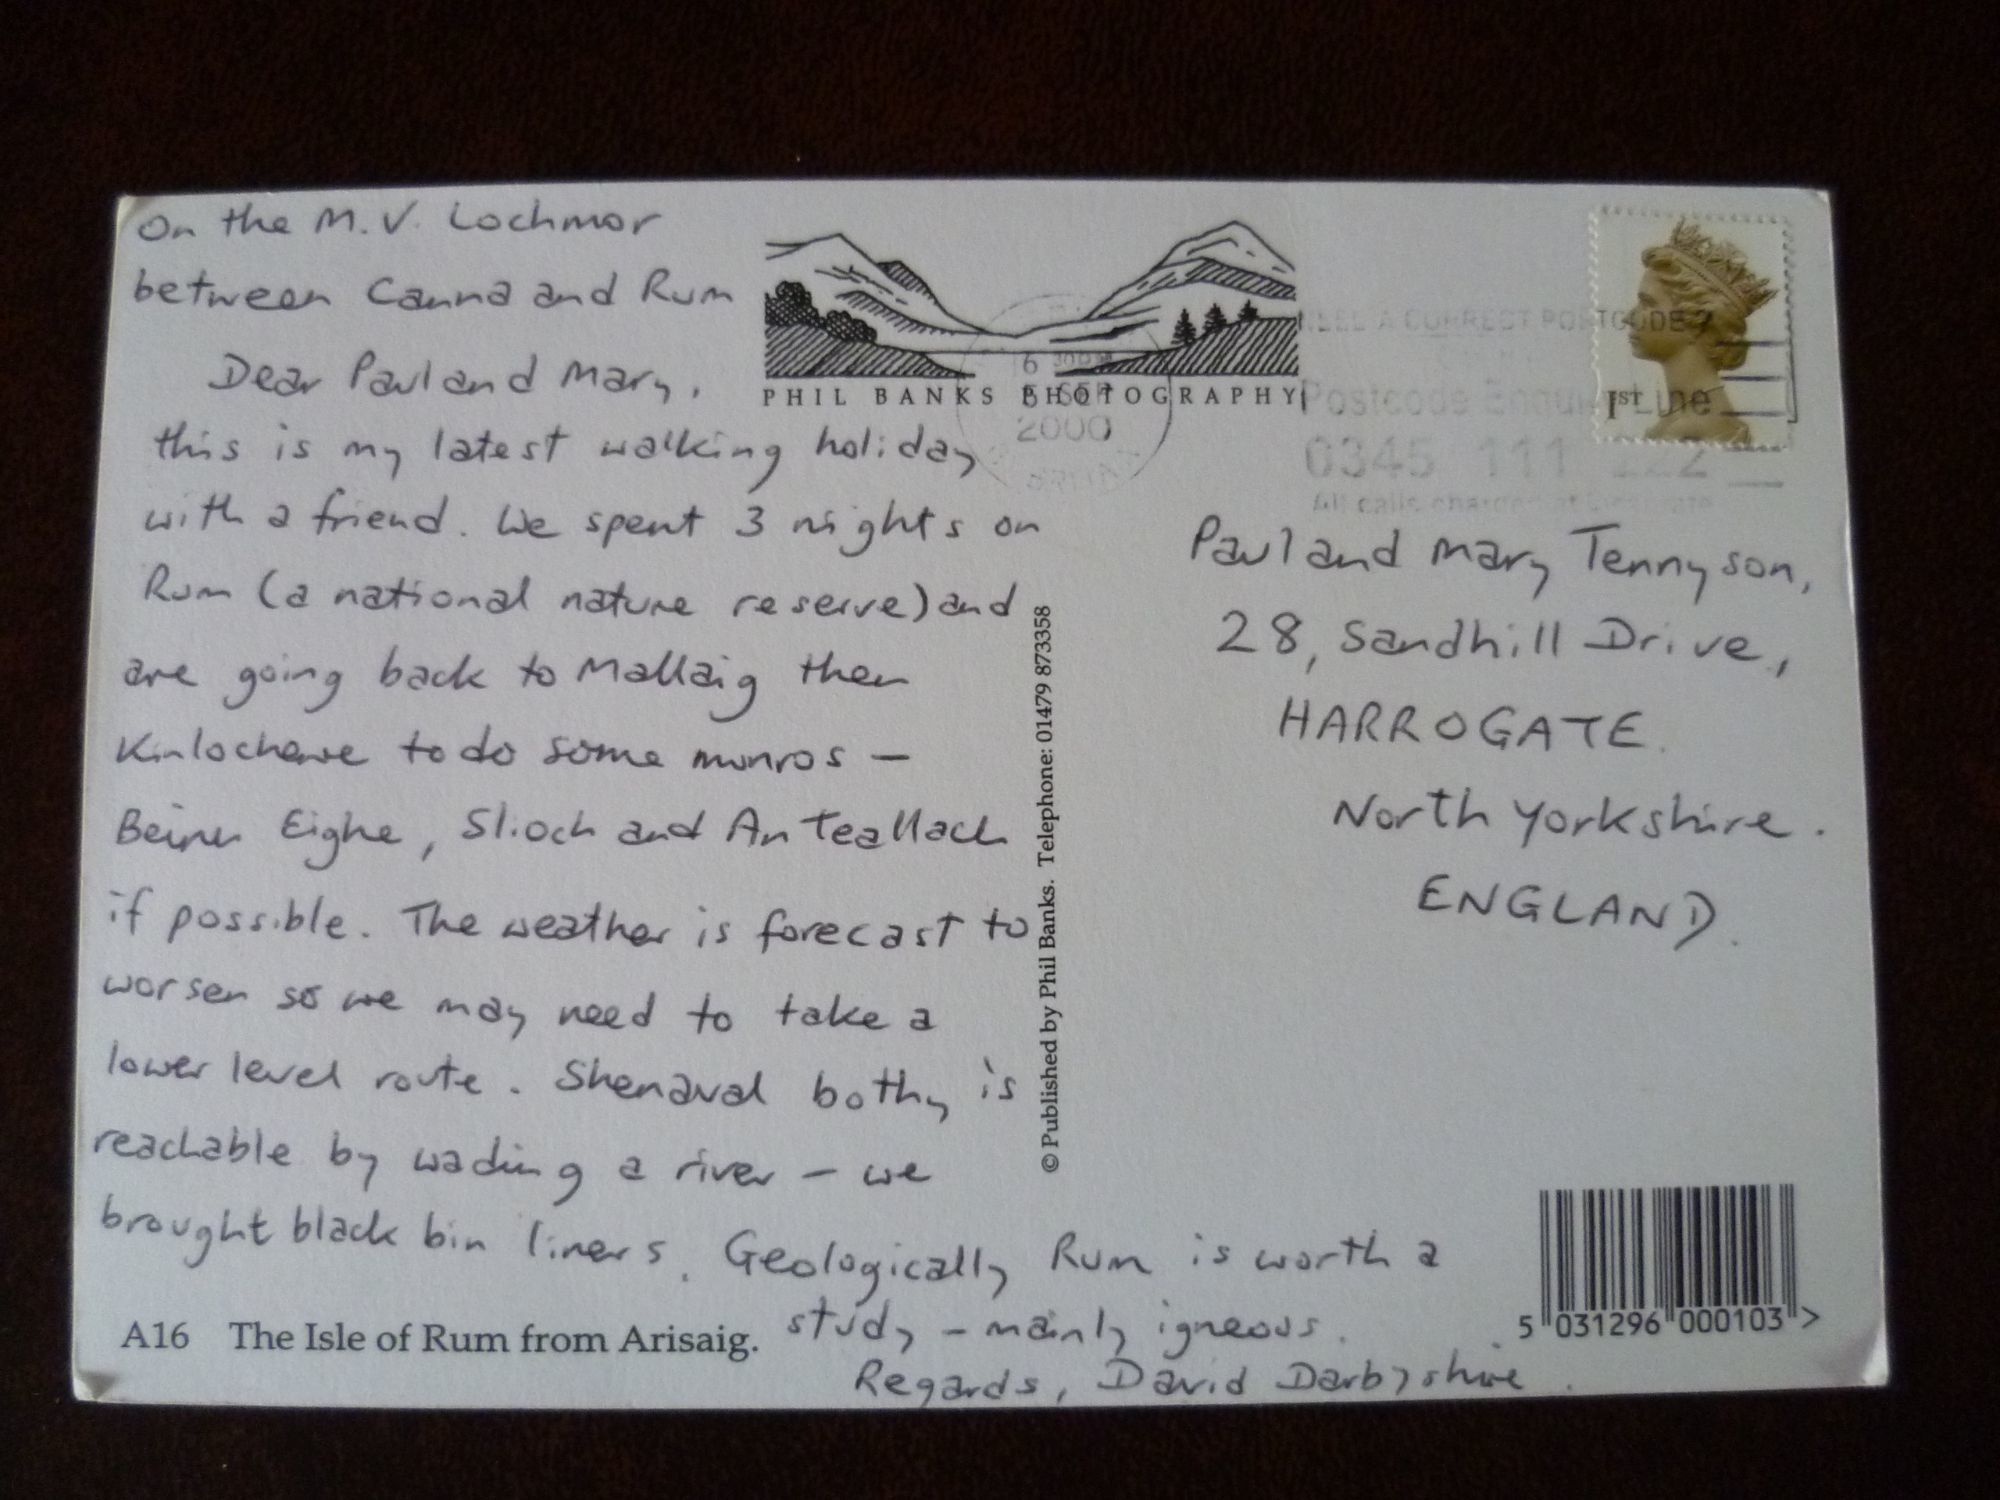 On the M.V. Lochmor
between Canna and Rum
Dear Paul and Mary,
this is my latest walking holiday
with a friend. We spent 3 nights on
Rum (a national nature reserve) and
are going back to Mallaig then
Kinlochewe to do some munros –
Beinn Eighe, Slioch and An Teallach
if possible. The weather is forecast to
worsen so we may need to take a
lower level route. Shenaval bothy is
reachable by wading a river – we
brought black bin liners. Geologically Rum is worth a
study – mainly igneous.
Regards, David Darbyshire.
A16 The Isle of Rum from Arisaig.
PHIL BANKS PHOTOGRAPHY
© Published by Phil Banks. Telephone: 01479 873358
6
SEP
2000
A CORRECT POSTCODE?
Postcode Line
0345 111
All calls charged at
1st
Paul and Mary Tennyson,
28, Sandhill Drive,
HARROGATE.
North Yorkshire.
ENGLAND.
5 031296 000103 >